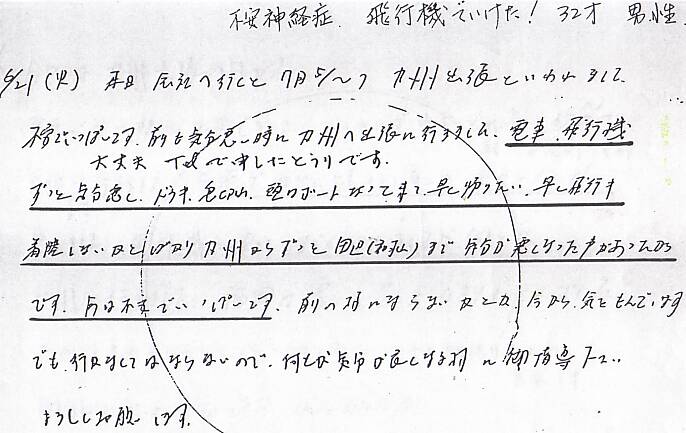 不安神経症、飛行機でいけた! 32才 男性
5/21(火) 本日 会社へ行くと 7月 5/〜 九州出張といわれまして、
不安でいっぱいです。前も気分悪い時に九州へ出張に行きまして、電車、飛行機
大丈夫 Telで申したとうりです。
ずっと気分悪く、ドウキ、息切れ、頭がボーとなってきて、早く帰りたい、早く飛行機
着陸しないかとばかり 九州からずっと田辺(和歌山)まで 気分が悪くなった事があったから
です。今は不安でいっぱいです。前の様にならないかとか、今から、気をもんでいます
でも、行かなくてはならないので、何とか気分が良くなる様に御指導下さい
よろしくお願いします。